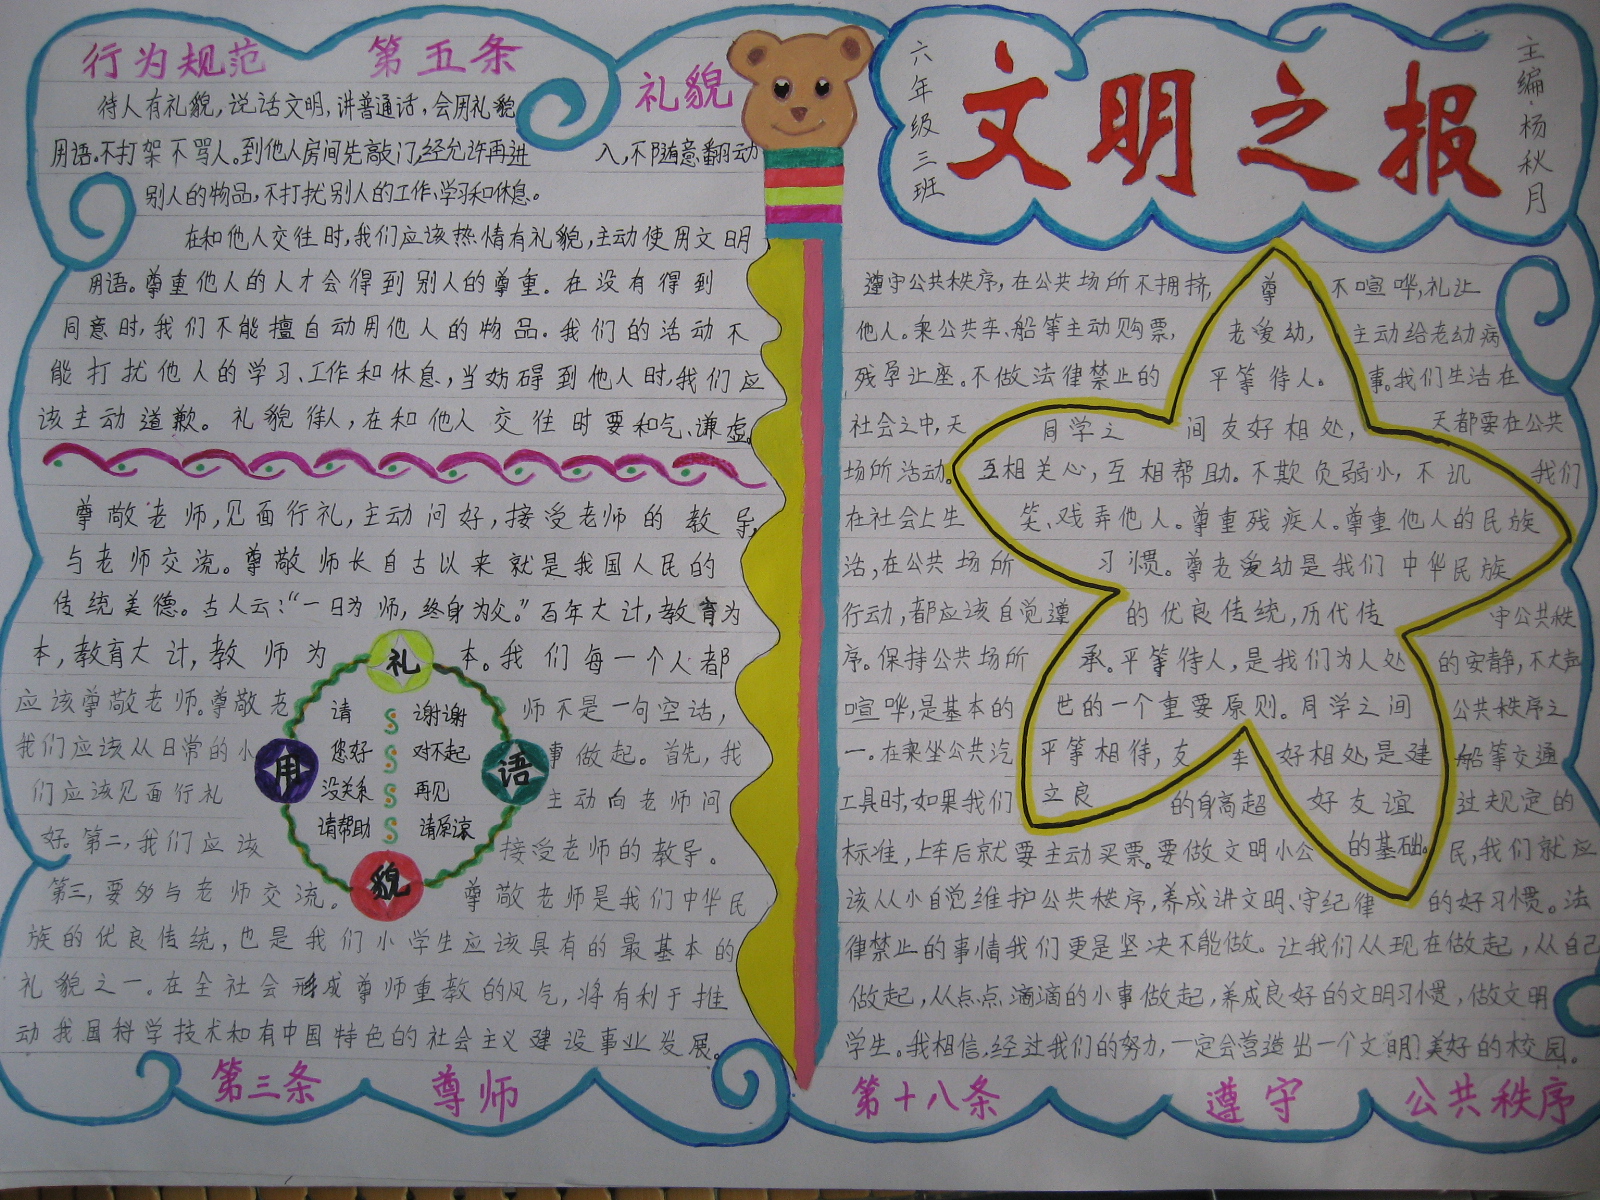 行为规范 第五条 礼貌
待人有礼貌,说话文明,讲普通话,会用礼貌
用语。不打架不骂人。到他人房间先敲门,经允许再进入,不随意翻动
别人的物品,不打扰别人的工作、学习和休息。
在和他人交往时,我们应该热情有礼貌,主动使用文明
用语。尊重他人的人才会得到别人的尊重。在没有得到
同意时,我们不能擅自动用他人的物品。我们的活动不
能打扰他人的学习、工作和休息,当妨碍到他人时,我们应
该主动道歉。礼貌待人,在和他人交往时要和气、谦虚。
尊敬老师,见面行礼,主动问好,接受老师的教导,
与老师交流。尊敬师长自古以来就是我国人民的
传统美德。古人云:“一日为师,终身为父。”百年大计,教育为
本,教育大计,教师为本。我们每一个人都
应该尊敬老师。尊敬老师不是一句空话,
我们应该从日常的小事做起。首先,我
们应该见面行礼主动向老师问
好。第二,我们应该接受老师的教导。
第三,要多与老师交流。尊敬老师是我们中华民
族的优良传统,也是我们小学生应该具有的最基本的
礼貌之一。在全社会形成尊师重教的风气,将有利于推
动我国科学技术和有中国特色的社会主义建设事业发展。
礼
貌
用
语
请 谢谢
您好 对不起
没关系 再见
请帮助 请原谅
第三条 尊师
六年级三班
文明之报
主编:杨秋月
遵守公共秩序,在公共场所不拥挤,不喧哗,礼让
他人。乘公共车、船等主动购票,主动给老幼病
残孕让座。不做法律禁止的事。我们生活在
社会之中,天天都要在公共
场所活动。我们
在社会上生
活,在公共场所
行动,都应该自觉遵守公共秩
序。保持公共场所的安静,不大声
喧哗,是基本的公共秩序之
一。在乘坐公共汽车船等交通
工具时,如果我们的身高超过规定的
标准,上车后就要主动买票。要做文明小公民,我们就应
该从小自觉维护公共秩序,养成讲文明、守纪律的好习惯。法
律禁止的事情我们更是坚决不能做。让我们从现在做起,从自己
做起,从点点滴滴的小事做起,养成良好的文明习惯,做文明
学生。我相信,经过我们的努力,一定会营造出一个文明美好的校园。
尊
老爱幼,
平等待人。
同学之间友好相处,
互相关心,互相帮助。不欺负弱小,不讥
笑、戏弄他人。尊重残疾人。尊重他人的民族
习惯。尊老爱幼是我们中华民族
的优良传统,历代传
承。平等待人,是我们为人处
世的一个重要原则。同学之间
平等相待,友好相处是建
立良好友谊
的基础。
第十八条 遵守 公共秩序